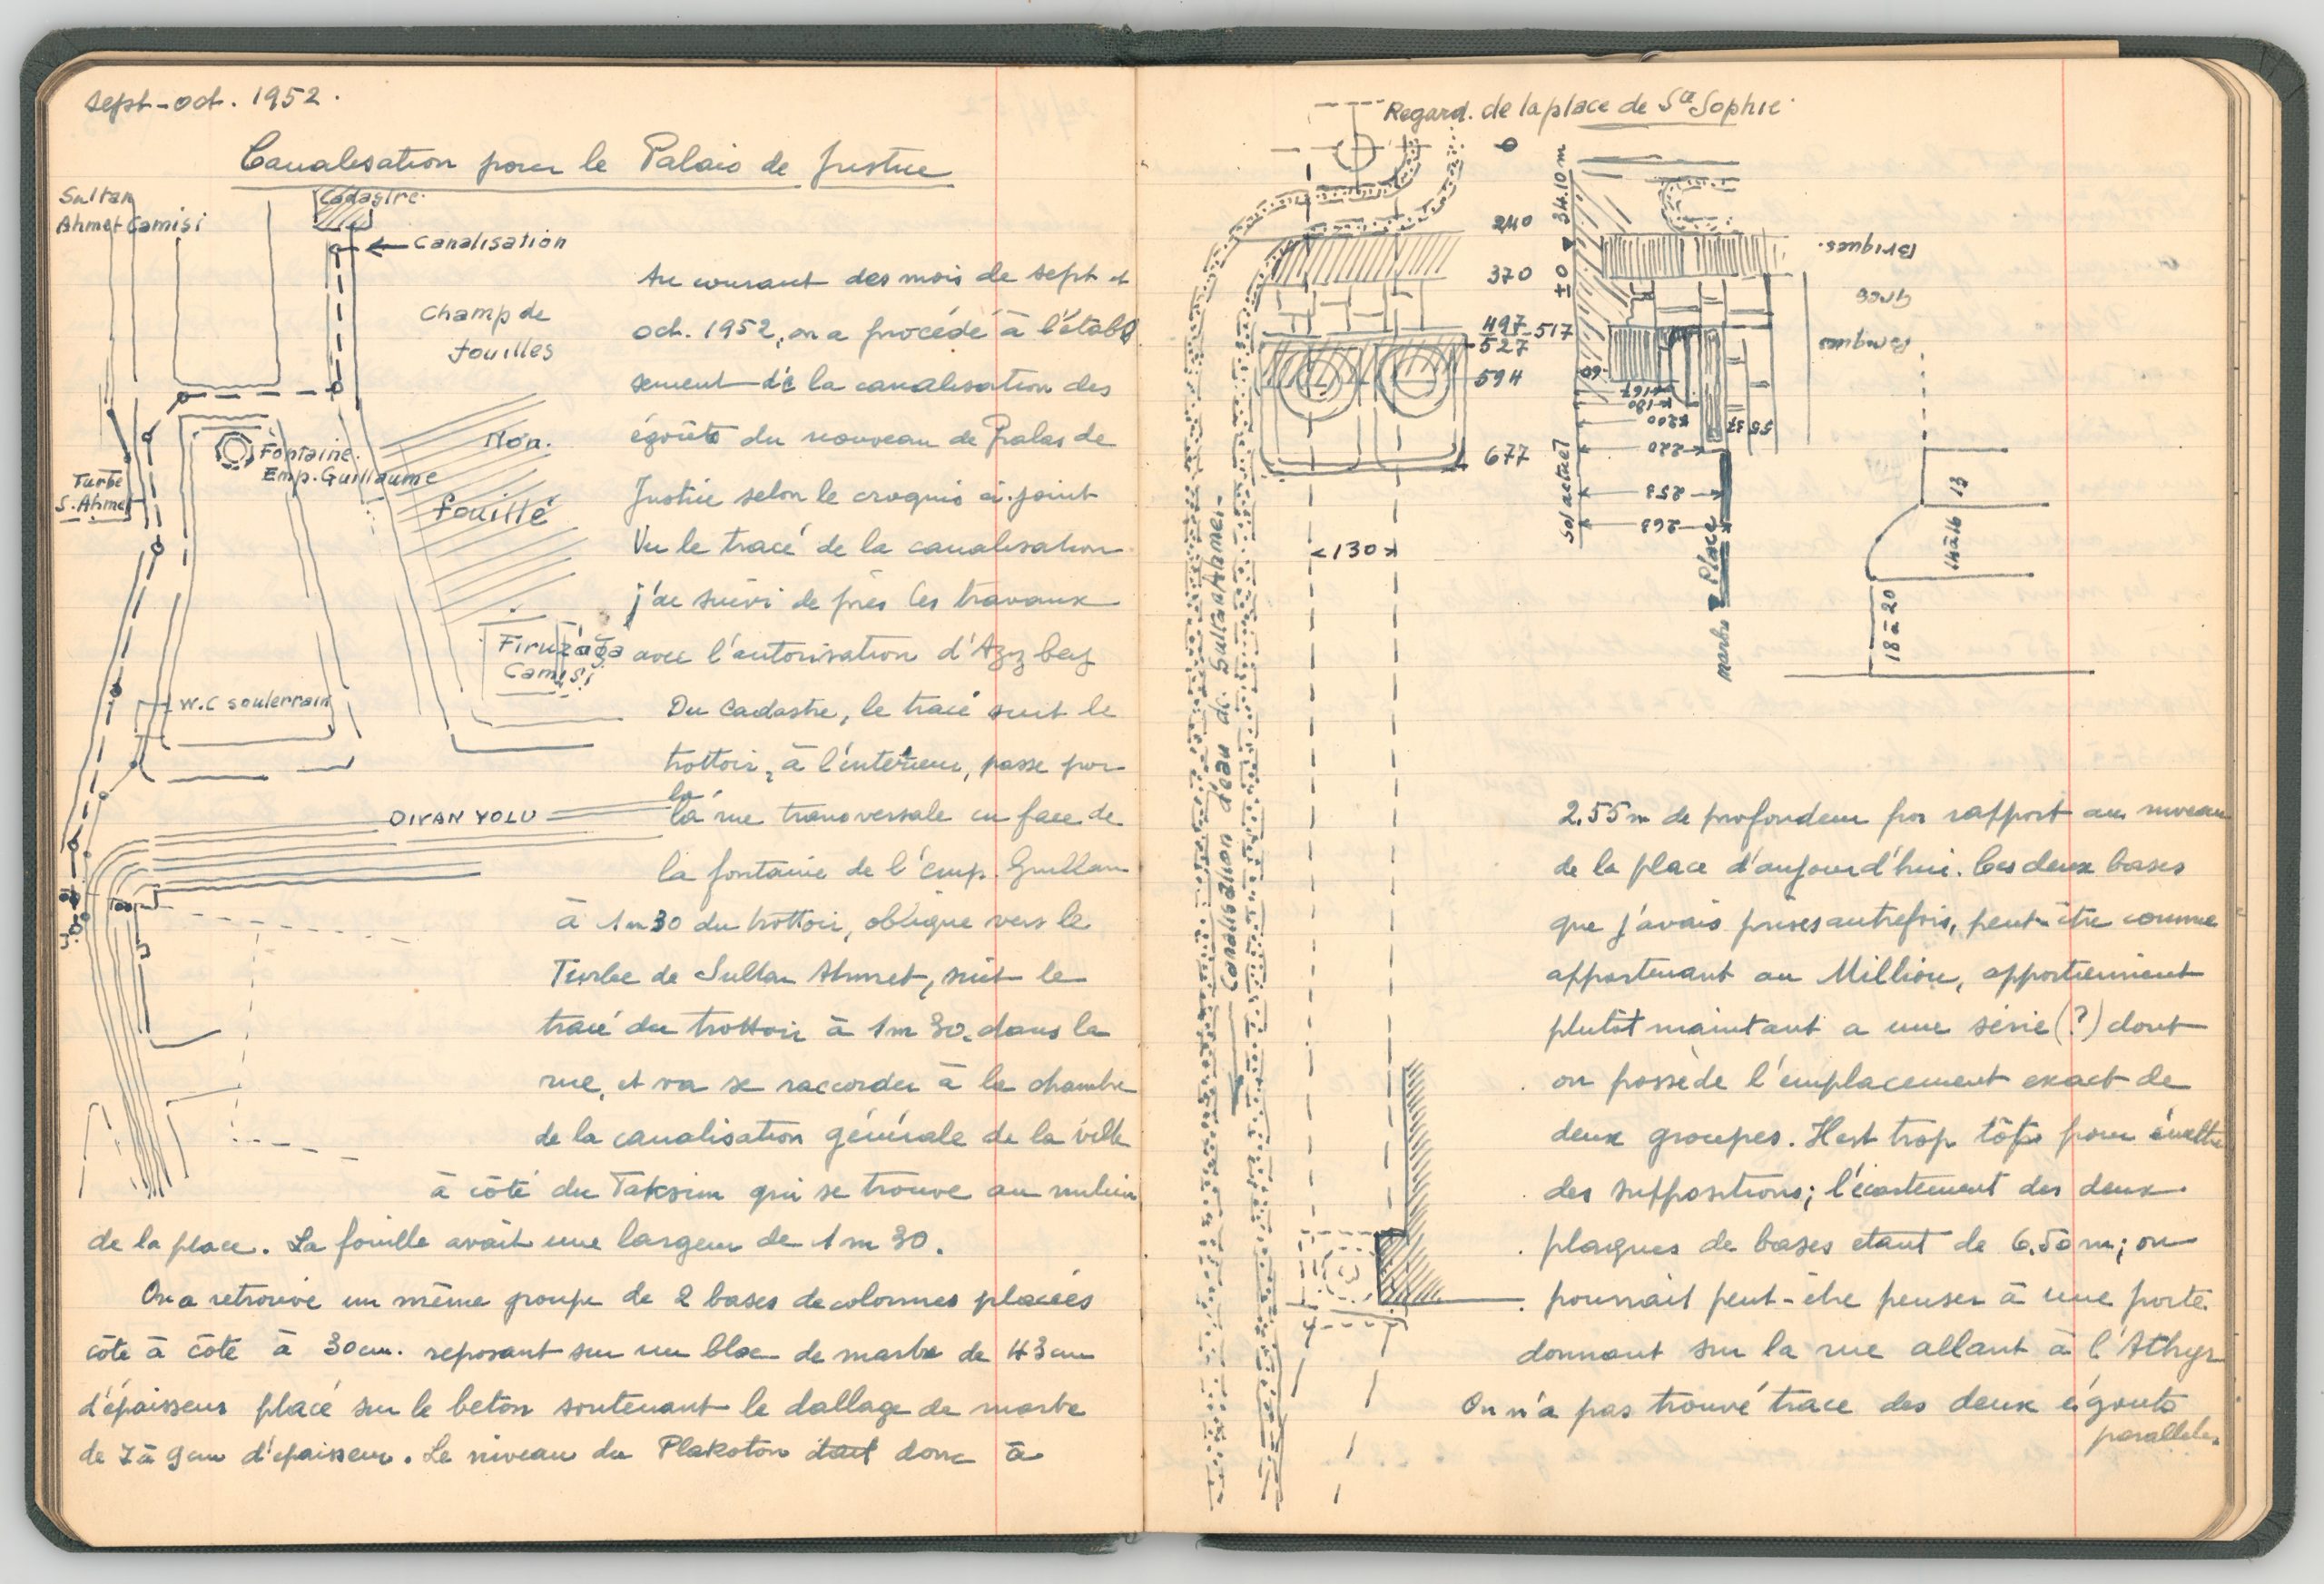 sept-oct. 1952.
Canalisation pour le Palais de Justice
Sultan
Ahmet Camisi
Cadastre.
Canalisation
Champ de
fouilles
Non.
fouillé
Fontaine.
Emp. Guillaume
Turbe
S. Ahmet
Firuzağa
Camisi
W.C souterrain
DIVAN YOLU
Au courant des mois de sept et
oct. 1952, on a procédé à l'établis
sement de la canalisation des
égoûts du nouveau de Palais de
Justice selon le croquis ci-joint
Vu le tracé de la canalisation
j'ai suivi de près les travaux
avec l'autorisation d'Aziz bey
Du Cadastre, le tracé suit le
trottoir, à l'intérieur, passe par
la
la rue transversale en face de
la fontaine de l'emp. Guillau
à 1m30 du trottoir, oblique vers le
Turbe de Sultan Ahmet, suit le
tracé du trottoir à 1m30. dans la
rue, et va se raccorder à la chambre
de la canalisation générale de la ville
à côté du Taksim qui se trouve au milieu
de la place. La fouille avait une largeur de 1m30.
On a retrouvé un même groupe de 2 bases de colonnes placées
côte à côte à 30cm. reposant sur un bloc de marbre de 43cm
d'épaisseur placé sur le béton soutenant le dallage de marbre
de 7 à 9cm d'épaisseur. Le niveau du Plakoton était donc à
Regard. de la place de Ste Sophie
0
240
370
497-517
527
594
677
130
Canalisation d'eau de Sultan Ahmet
± 0 34.10 m
Briques.
Gros
Briques
60
167
180
200
220
253
263
37
55
Sol actuel
marbre Place
13
14à16
18à20
2.55m de profondeur par rapport au niveau
de la place d'aujourd'hui. Ces deux bases
que j'avais prises autrefois, peut-être comme
appartenant au Million, appartiennent
plutôt maintant a une série (?) dont
on possède l'emplacement exact de
deux groupes. Il est trop tôt pour émettre
des suppositions; l'écartement des deux
plaques de bases étant de 6.50m; on
pourrait peut-être penser à une porte
donnant sur la rue allant à l'Athyr
On n'a pas trouvé trace des deux égouts
parallèles.